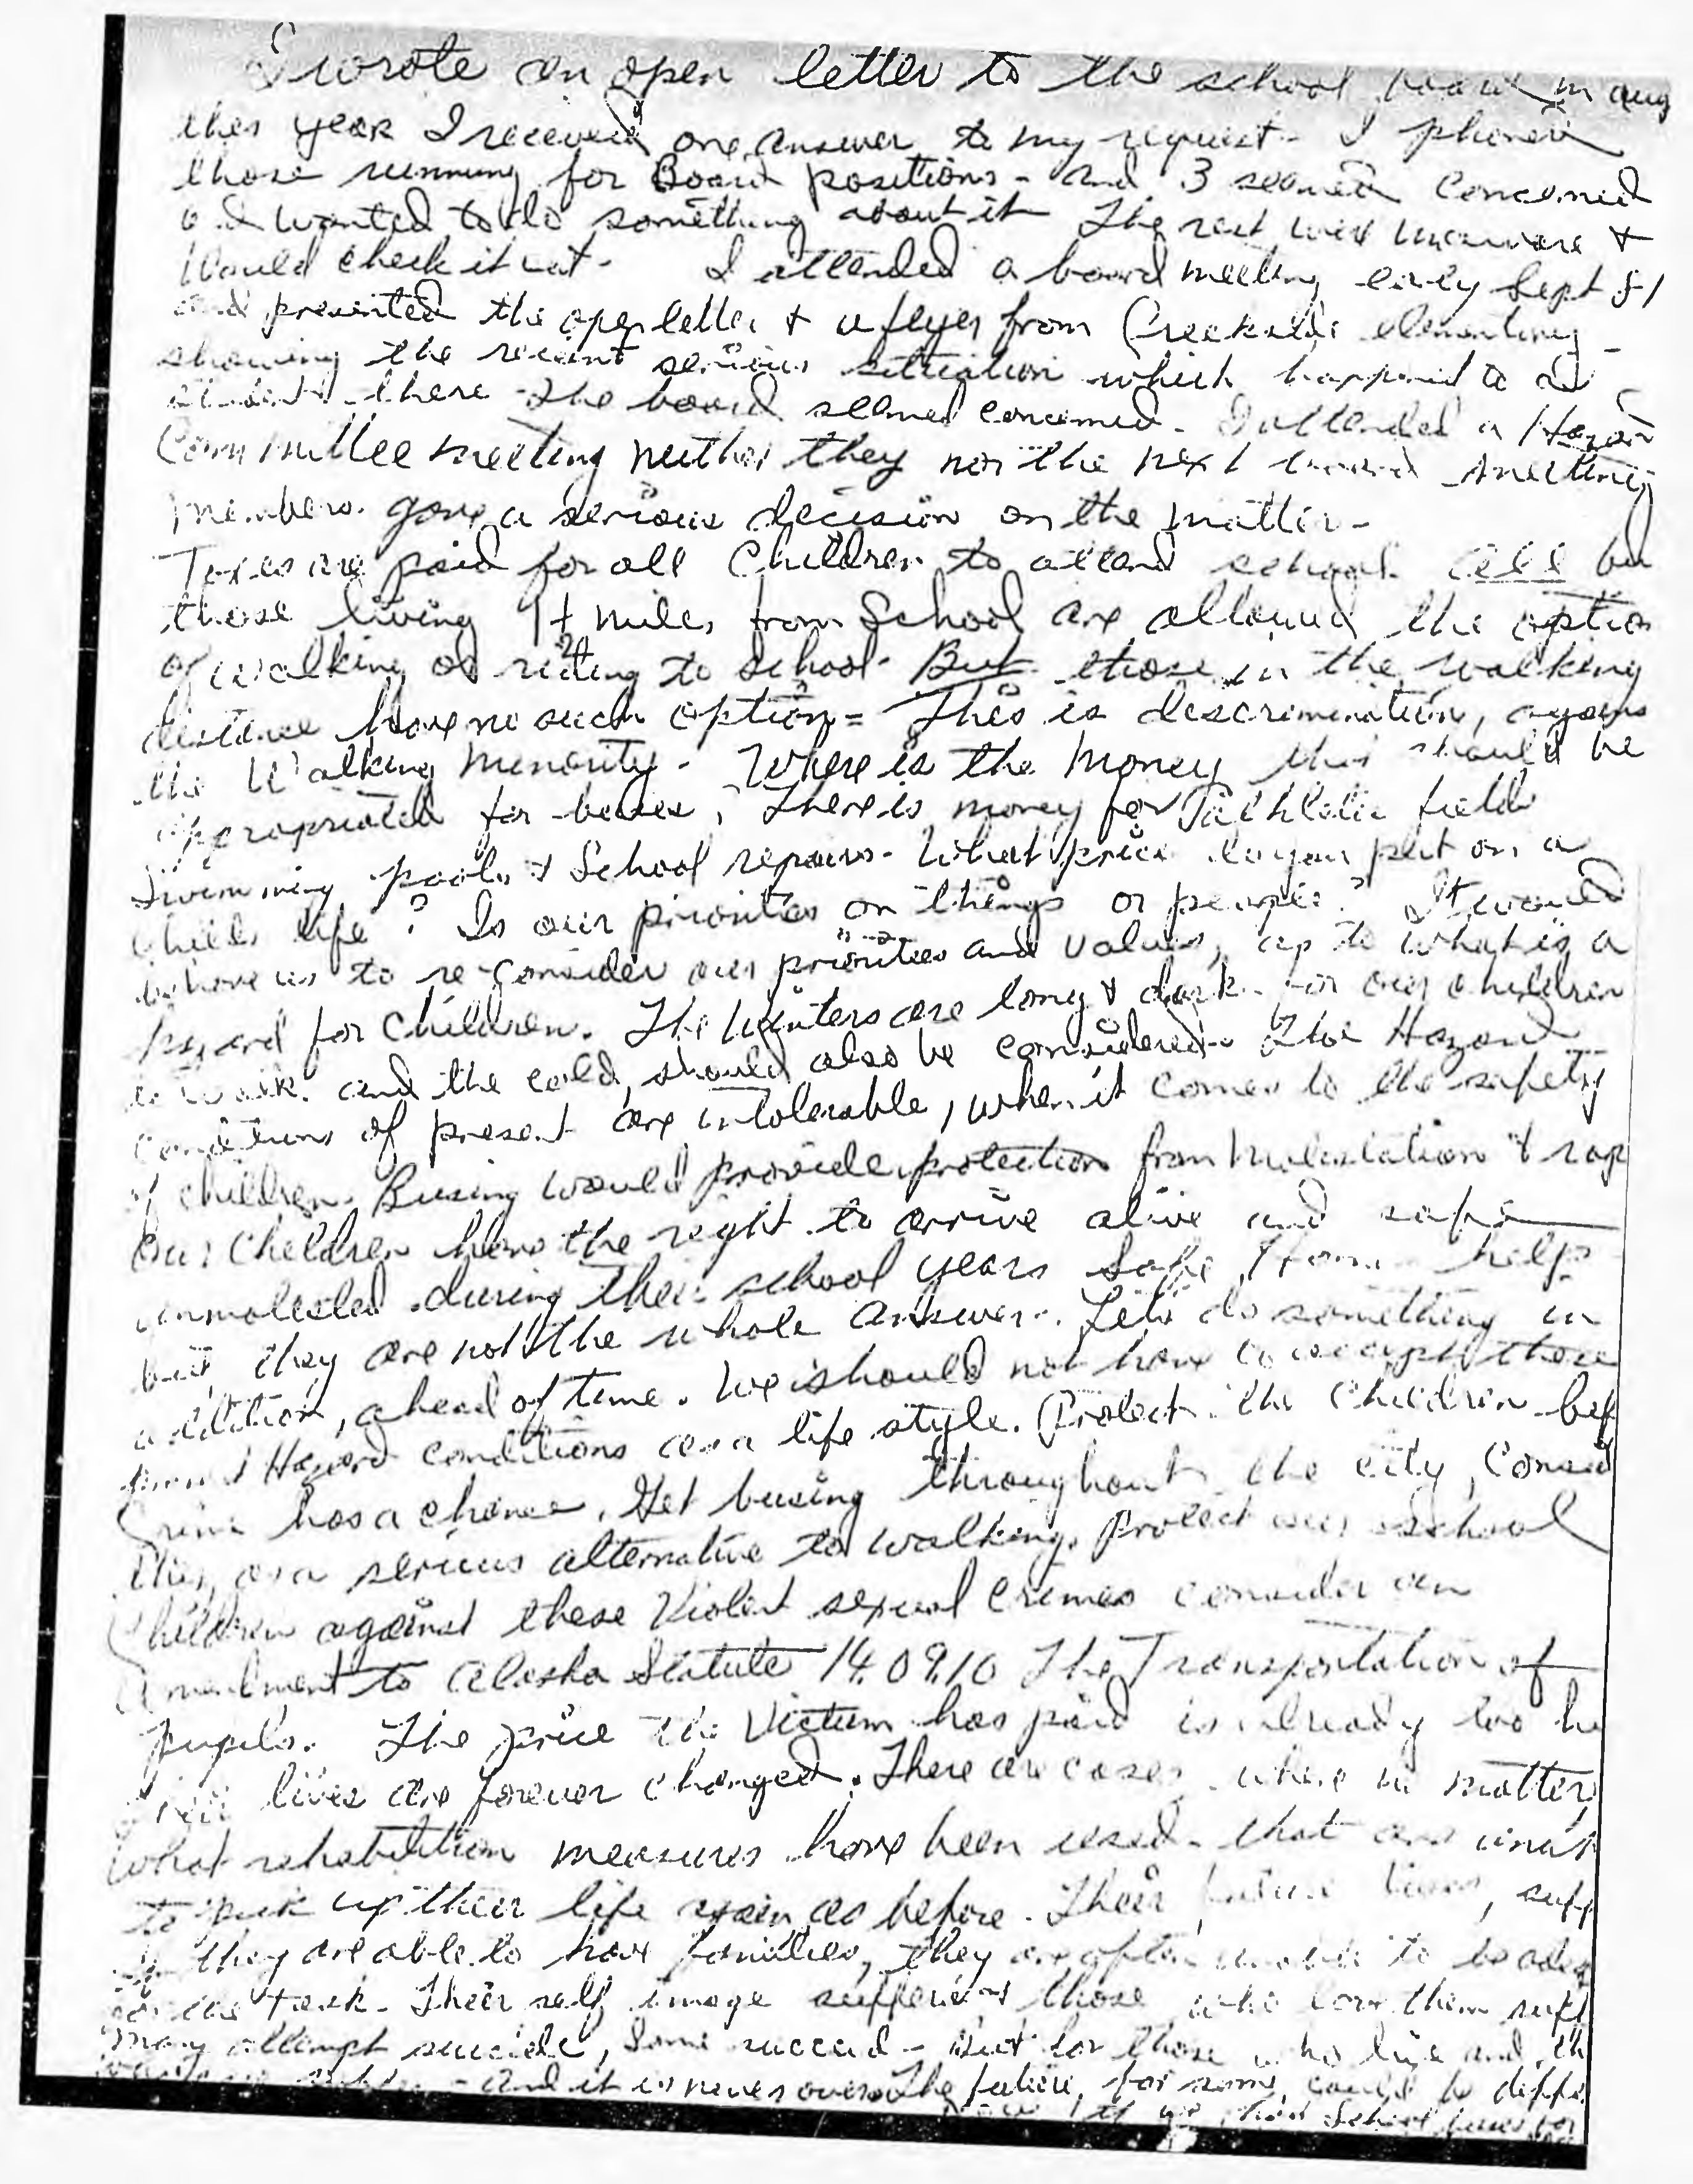 I wrote an open letter to the school board in aug
this year I received one answer to my request - I phoned
those running for Board positions - and 3 seemed concerned
and wanted to do something about it The rest were unaware +
would check it out - I attended a board meeting early Sept 81
and presented the open letter + a flyer from Creekside elementary -
showing the recent serious situation which happened to a
student there - The board seemed concerned - I attended a Hazard
Committee meeting neither they nor the next board meeting
members gave a serious decision on the matter -
Taxes are paid for all Children to attend school. all
those living 1+ miles from School are allowed the option
of walking or riding to school - But those in the walking
distance have no such option = This is descrimination, agains
the Walking Minority - Where is the money that should be
appropriated for buses? There is money for athletic fields
Swimming pools + School repairs - What price do you put on a
childs life? Is our priorities on things or people? It would
behove us to re-consider our priorities and values, as to what is a
hazard for children. The Winters are long & dark for our children
to walk and the cold, should also be considered - The Hazard
conditions of present are intolerable, when it comes to the safety
of children. Busing would provide protection from Molestation & rap
Our Children have the right to arrive alive and safe
unmolested during their school years Safe Homes help
but they are not the whole answer. Lets do something in
addition, ahead of time. We should not have to accept these
Hazard conditions as a life style. Protect the Children bef
Crime has a chance. Get busing throughout the city, Consid
this as a serious alternative to walking. Protect our School
Children against these Violent sexual Crimes consider an
Amendment to Alaska Statute 14.09.10 The Transportation of
Pupils. The price the Victum has paid is already too hi
Their lives are forever changed. There are cases where no matter
what rehabilition measures have been used - that are
to pick up their life again as before. Their future lives, suff
If they are able to have families, they are often unable to be adeq
for the task. Their self image suffers and those who love them suff
Many attempt suicide, Some succeed - But for those who live and th
- and it is never over The future, for some, could be diffe
if we had School buses for